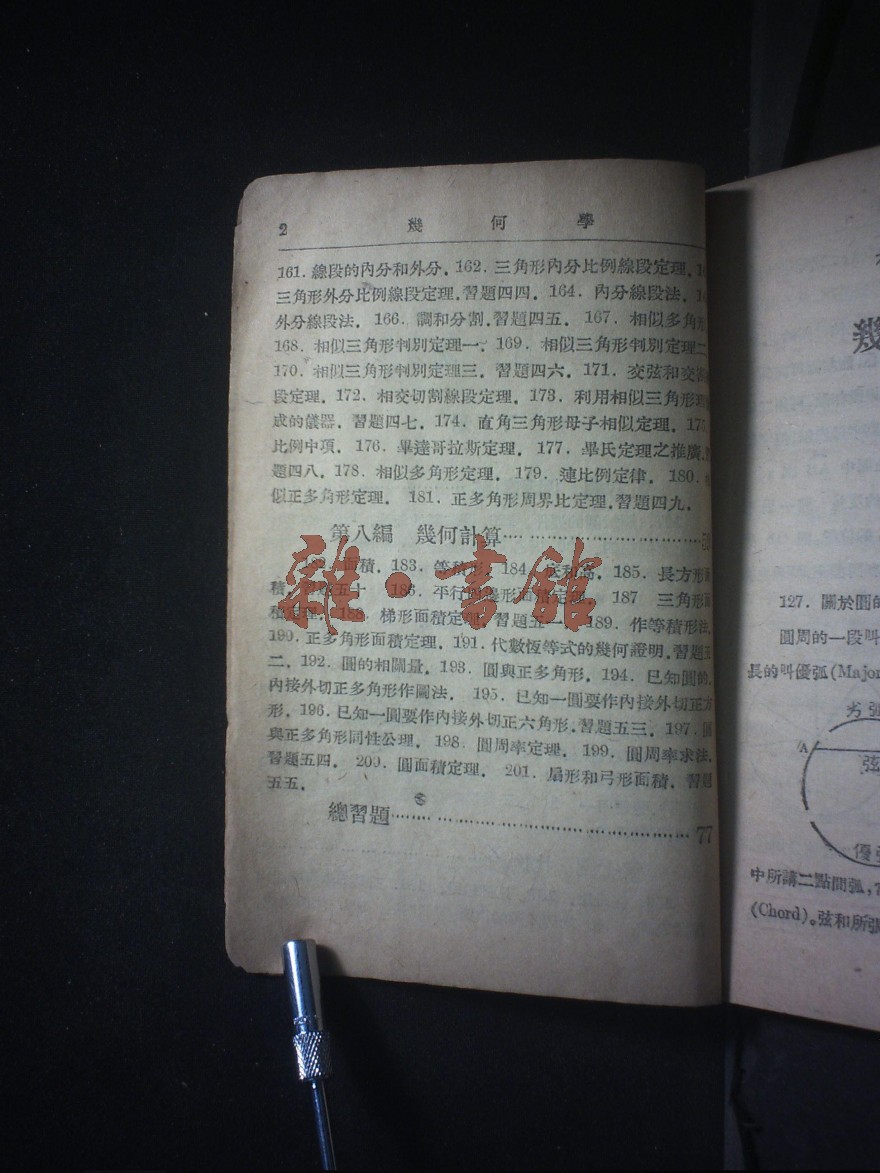 2 幾何學
161．線段的內分和外分．162．三角形內分比例線段定理．
三角形外分比例線段定理．習題四四．164．內分線段法．
外分線段法．166．調和分割．習題四五．167．相似多角形
168．相似三角形判別定理一．169．相似三角形判別定理二
170．相似三角形判別定理三．習題四六．171．交弦和交
段定理．172．相交切割線段定理．173．利用相似三角形
成的儀器．習題四七．174．直角三角形母子相似定理．175
比例中項．176．畢達哥拉斯定理．177．畢氏定理之推廣．
題四八．178．相似多角形定理．179．連比例定律．180．
似正多角形定理．181．正多角形周界比定理．習題四九．
第八編 幾何計算…………………………59
182．面積．183．等積形．184．底和高．185．長方形面
積．習題五十 186．平行四邊形面積定理．187 三角形面
積定理．188．梯形面積定理．習題五一．189．作等積形法．
190．正多角形面積定理．191．代數恆等式的幾何證明．習題五
二．192．圓的相關量．193．圓與正多角形．194．已知圓的
內接外切正多角形作圖法．195．已知一圓要作內接外切正方
形．196．已知一圓要作內接外切正六角形．習題五三．197．圓
與正多角形同性公理．198．圓周率定理．199．圓周率求法．
習題五四．200．圓面積定理．201．扇形和弓形面積．習題
五五．
總習題…………………………77
雜·書館
幾
127．關於圓的
圓周的一段叫
長的叫優弧(Major
劣弧
A
弦
優弧
中所講二點間弧，
(Chord)。弦和所張